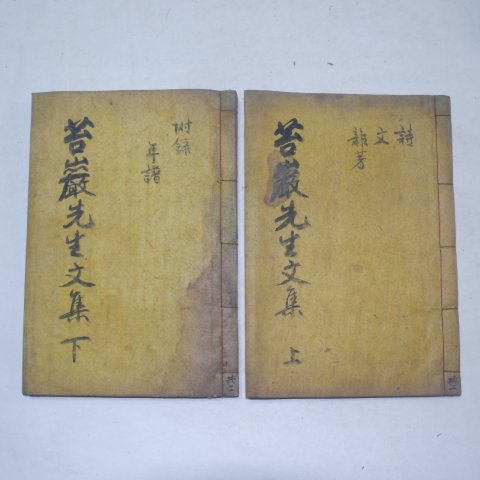 詩
文
雜著
苔巖先生文集 上
共二
附錄
年譜
苔巖先生文集 下
共二